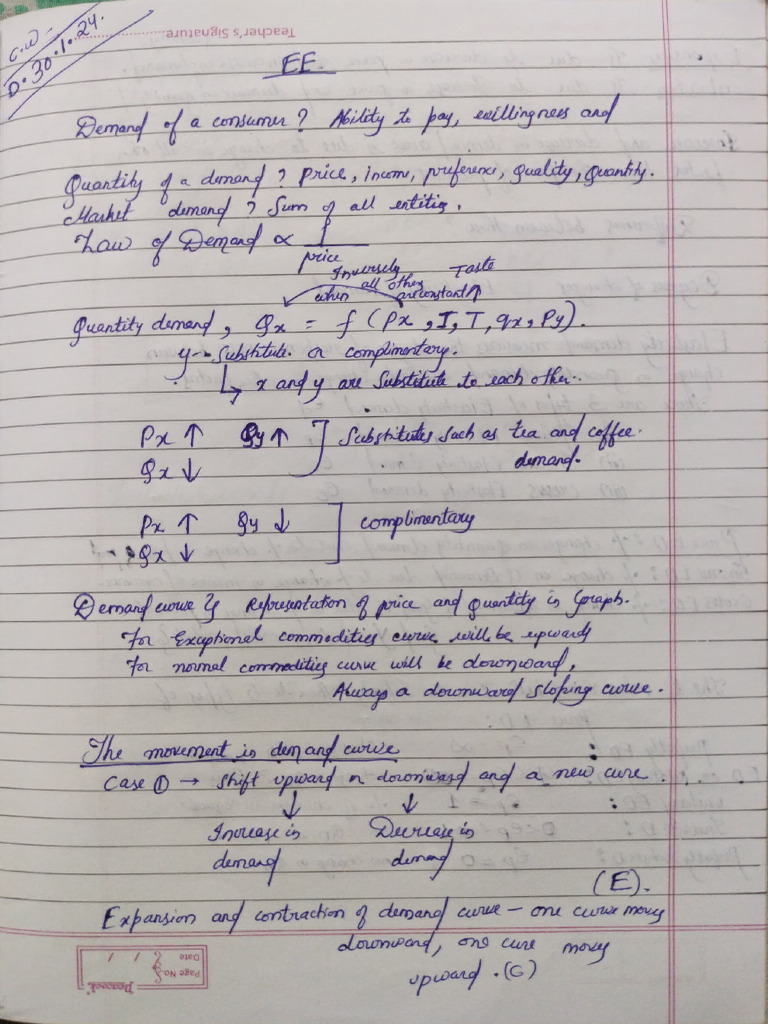 C.W
D. 30.1.24.
Teacher's Signature
EE
Demand of a consumer? Ability to pay, willingness and
Quantity of a demand? Price, income, preference, quality, quantity.
Market demand? Sum of all entities.
Law of Demand ∝ 1
price
Inversely Taste
all other
when are constant ↑
Quantity demand, Qx = f (Px, I, T, qx, Py).
y → Substitute or complimentary.
↳ x and y are Substitute to each other.
Px ↑ Qy ↑ ] Substitutes such as tea and coffee
Qx ↓ demand.
Px ↑ Qy ↓ ] complimentary
Qx ↓
Demand curve is Representation of price and quantity in Graph.
For Exceptional commodities curve will be upwards
For normal commodities curve will be downward,
Always a downward sloping curve.
The movement in demand curve
Case ① → shift upward or downward and a new cure.
↓ ↓
Increase in Decrease in
demand demand
(E).
Expansion and contraction of demand curve – one curve moves
downward, one cure moves
upward. (C)
Peacock
Page No.
Date / /